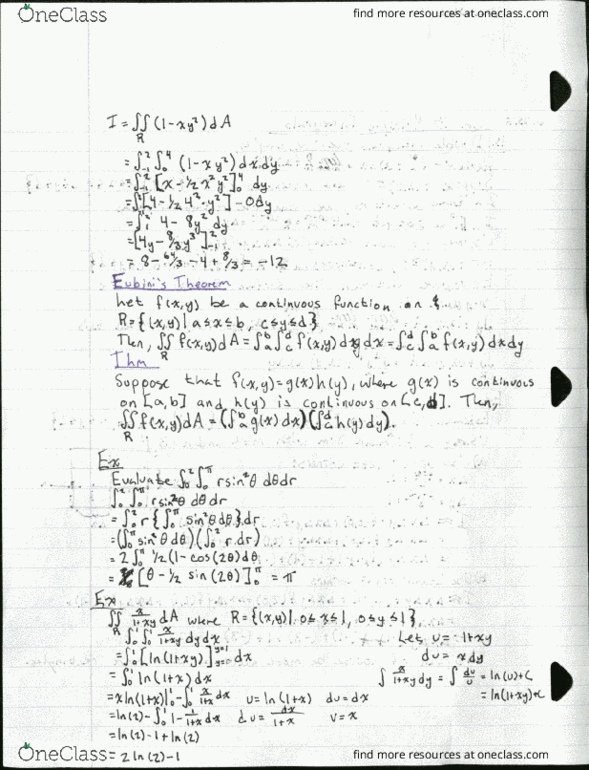 OneClass
find more resources at oneclass.com
I = ∬_R (1-xy²) dA
= ∫_{-1}^{2} ∫_0^4 (1-xy²) dx dy
= ∫_{-1}^{2} [x - 1/2 x² y²]_0^4 dy
= ∫[4 - 1/2 4² · y²] - 0 dy
= ∫_{-1}^{2} 4 - 8y² dy
= [4y - 8/3 y³]_{-1}^{2}
= 8 - 64/3 - 4 + 8/3 = -12
Fubini's Theorem
Let f(x,y) be a continuous function on
R = {(x,y) | a≤x≤b, c≤y≤d}
Then, ∬_R f(x,y) dA = ∫_a^b ∫_c^d f(x,y) dy dx = ∫_c^d ∫_a^b f(x,y) dx dy
Thm
Suppose that f(x,y) = g(x)h(y), where g(x) is continuous
on [a,b] and h(y) is continuous on [c,d]. Then,
∬_R f(x,y) dA = (∫_a^b g(x) dx)(∫_c^d h(y) dy).
Ex
Evaluate ∫_0^2 ∫_0^π r sin²θ dθ dr
∫_0^2 ∫_0^π r sin²θ dθ dr
= ∫_0^2 r {∫_0^π sin²θ dθ} dr
= (∫_0^π sin²θ dθ)(∫_0^2 r dr)
= 2 ∫_0^π 1/2 (1 - cos(2θ) dθ
= [θ - 1/2 sin(2θ)]_0^π = π
Ex
∬_R x/(1+xy) dA where R = {(x,y) | 0≤x≤1, 0≤y≤1}
∫_0^1 ∫_0^1 x/(1+xy) dy dx Let u = 1+xy
du = x dy
= ∫_0^1 [ln(1+xy)]_{y=0}^{y=1} dx
∫ x/(1+xy) dy = ∫ du/u = ln(u)+C
= ∫_0^1 ln(1+x) dx
= ln(1+xy)+C
= x ln(1+x)|_0^1 - ∫_0^1 x/(1+x) dx u = ln(1+x) dv = dx
= ln(2) - ∫_0^1 1 - 1/(1+x) dx du = dx/(1+x) v = x
= ln(2) - 1 + ln(2)
= 2 ln(2) - 1
OneClass
find more resources at oneclass.com